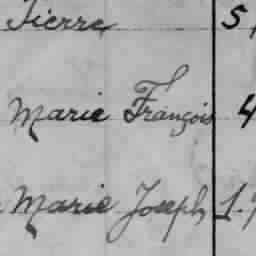 Pierre 5
Marie François 4
Marie Joseph 1.